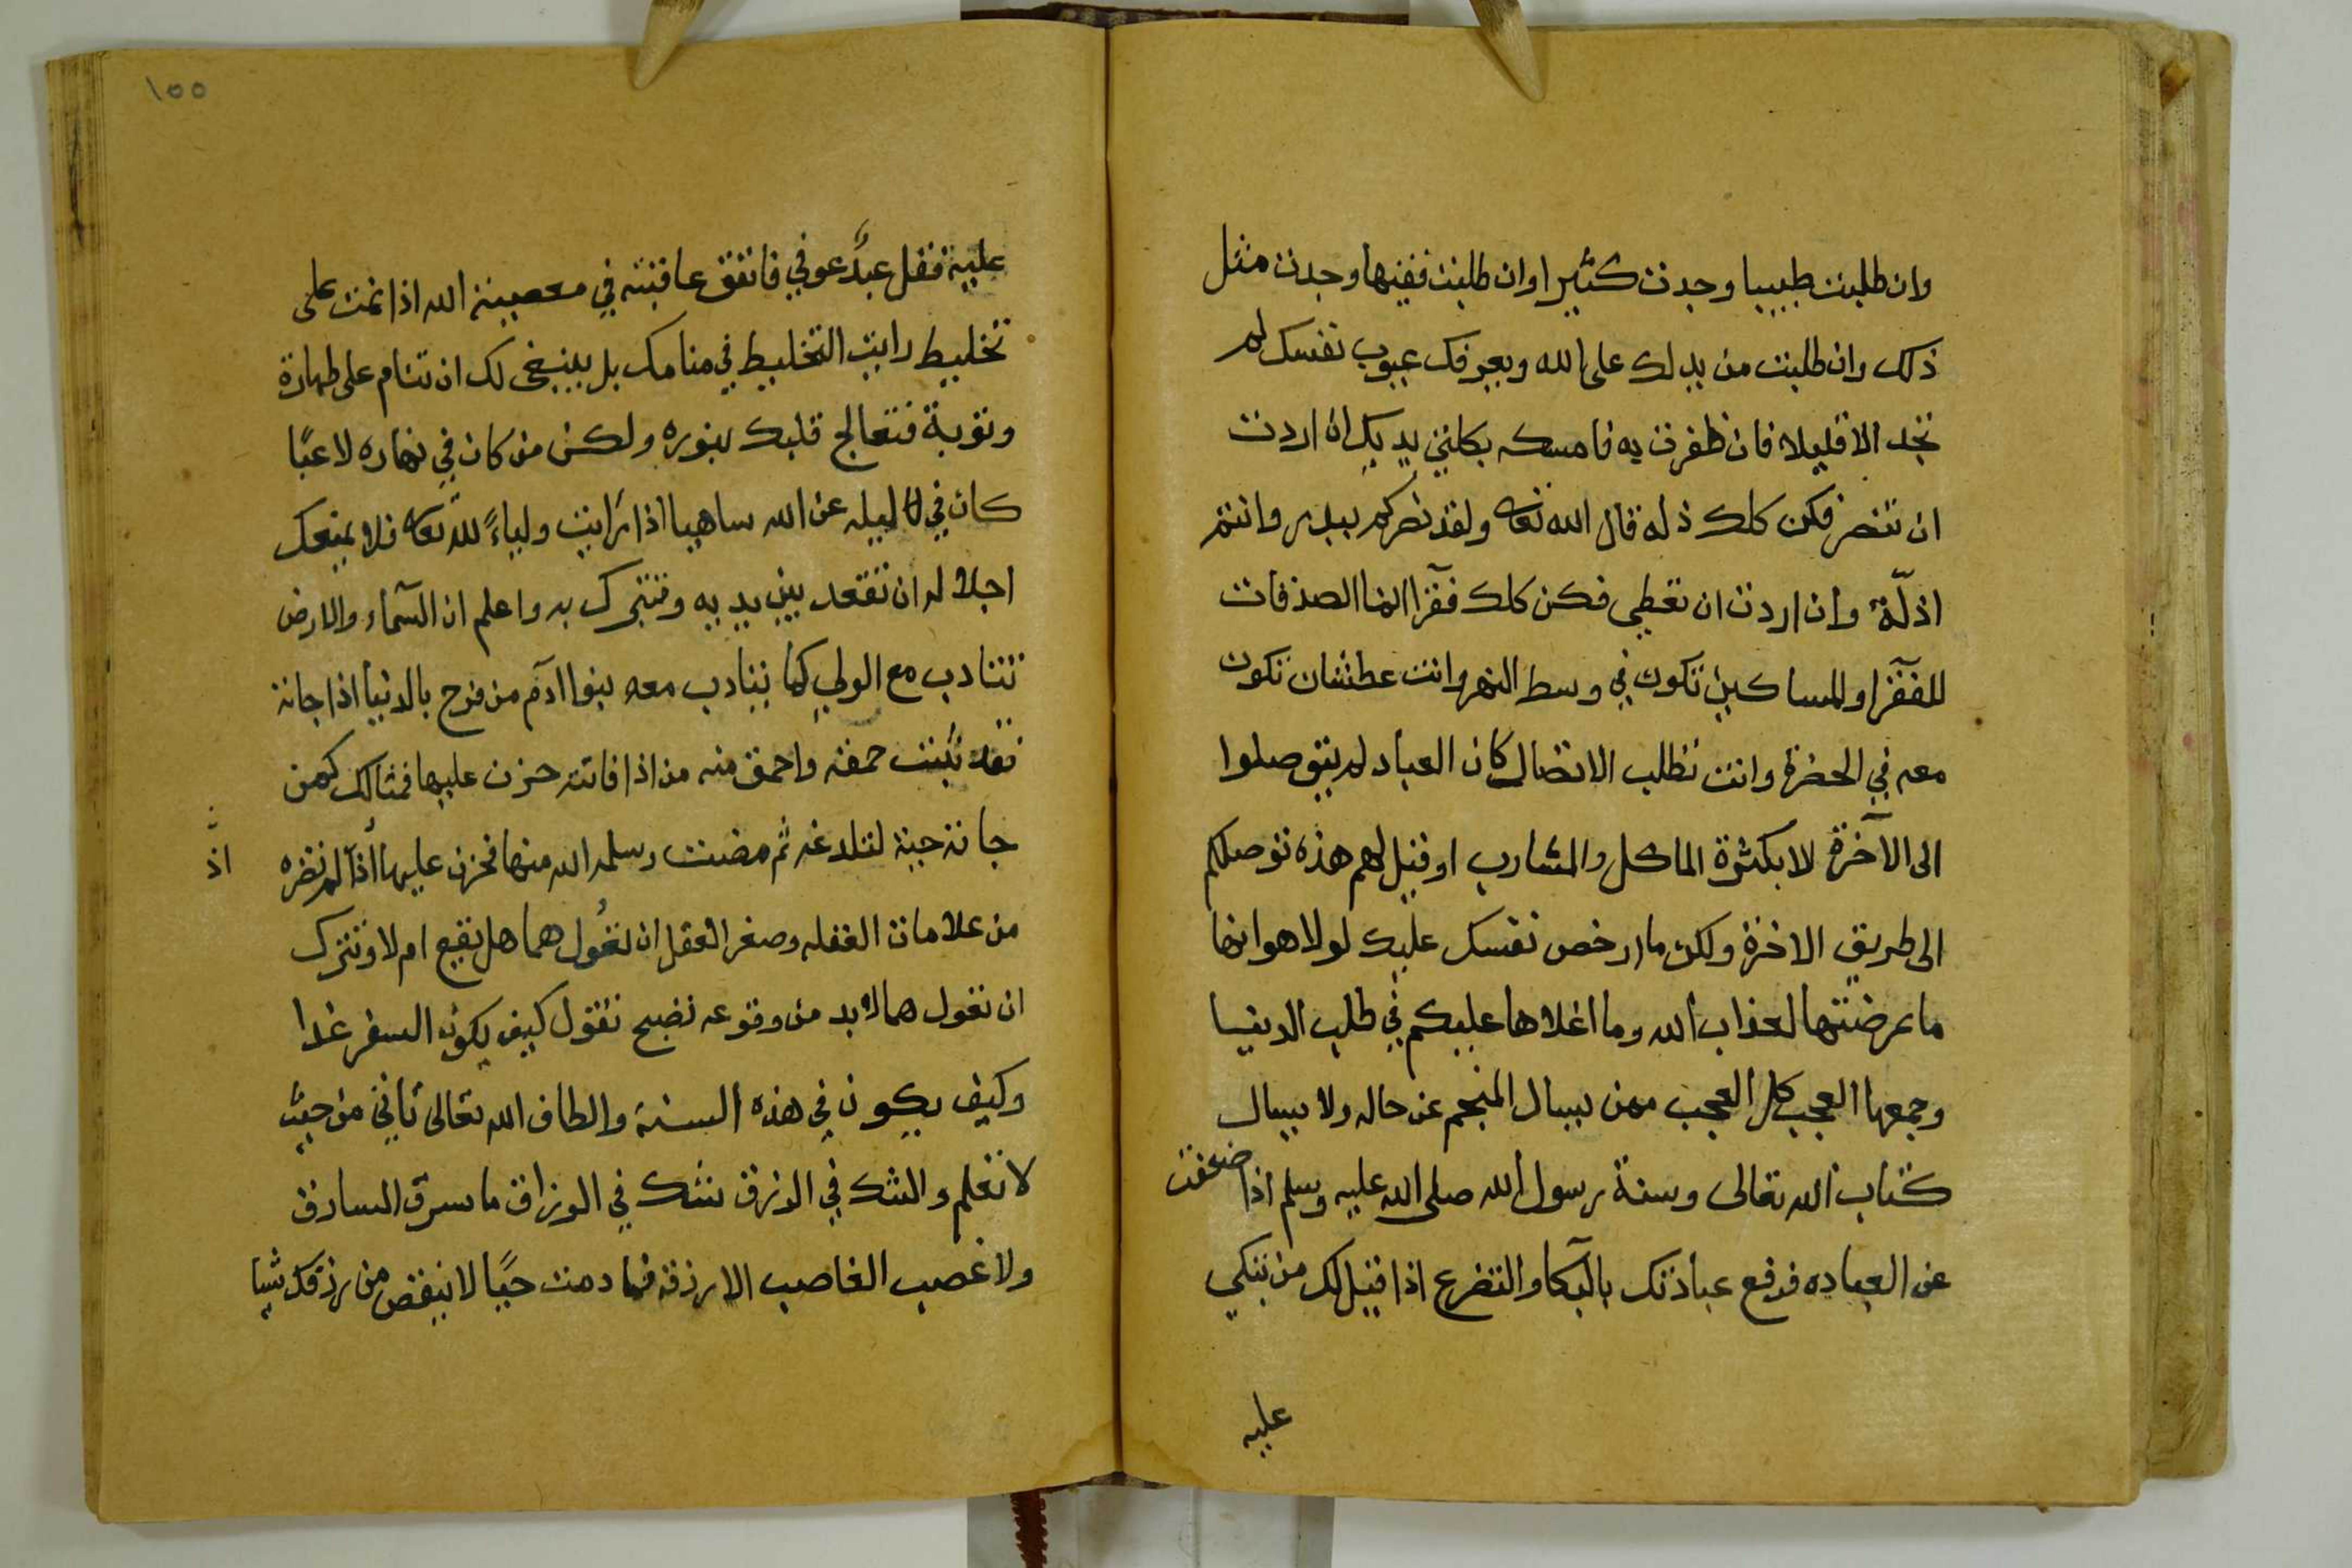 وان طلبت طبيبا وجدت كثيرا وان طلبت فقيها وجدت مثل
ذلك وان طلبت من يدلك على الله ويعرفك عيوب نفسك لم
تجد الا قليلا فان ظفرت به فامسكه بكلتي يديك ان اردت
ان تنصر فكن كلك ذله قال الله تعالى ولقد نصركم ببدر وانتم
اذلّة وان اردت ان تعطي فكن كلك فقرا انما الصدقات
للفقرا والمساكين تكون في وسط النهر وانت عطشان تكون
معه في الحضرة وانت تطلب الاتصال كان العباد لم يتوصلوا
الى الآخرة لا بكثرة الماكل والمشارب او قيل لهم هذه توصلكم
الى طريق الاخرة ولكن ما ارخص نفسك عليك لولا هوانها
ما عرضتها لعذاب الله وما اغلاها عليكم في طلب الدنيا
وجمعها العجب كل العجب ممن يسال المنجم عن حاله ولا يسال
كتاب الله تعالى وسنة رسول الله صلى الله عليه وسلم اذا ضعفت
عن العباده فرقع عبادتك بالبكا والتضرع اذا قيل لك من نبكي
عليه
١٥٥
عليه فقل عبدٌ عوفي فانفق عافيته في معصية الله اذا نمت على
تخليط رايت التخليط في منامك بل ينبغي لك ان تنام على طهارة
وتوبة فتعالج قلبك بنوره ولكن من كان في نهاره لاعبًا
كان في ليله عن الله ساهيا اذا رايت ولياءً لله تعالى فلا يمنعك
اجلاله ان تقعد بين يديه وتتبرك به واعلم ان السمآء والارض
تتادب مع الولي كما يتادب معه بنوا ادم من فرح بالدنيا اذا جاته
فقد ثبت حمقه واحمق منه من اذا فاتته حزن عليها فمثالك كمن
جاته حية لتلدغه ثم مضت وسلمه الله منها فحزن عليها اذا لم تضره
اذ
من علامات الغفله وصغر العقل ان تعول هما هل يقع ام لا وتترك
ان تعول هما لا بد من وقوعه تصبح تقول كيف يكون السفر غدا
وكيف يكون في هذه السنة والطاف الله تعالى تاتي من حيث
لا تعلم والشك في الرزق شك في الرزاق ما سرق السارق
ولا غصب الغاصب الا رزقه فما دمت حيًا لا ينقص من رزقك شيا